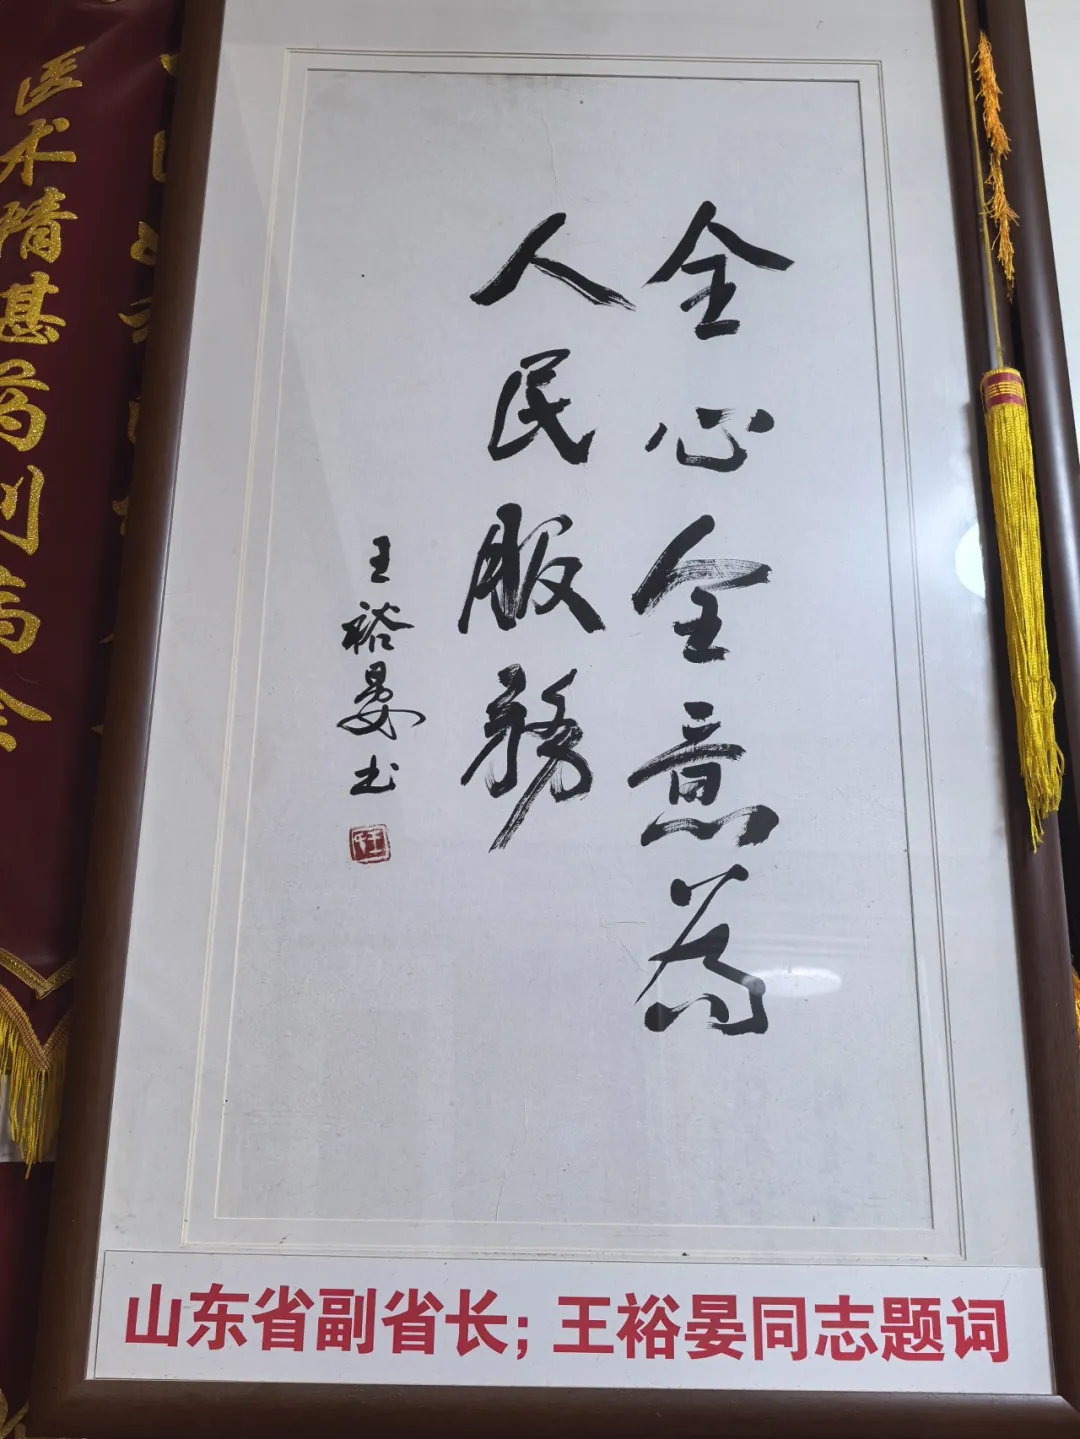 全心全意为
人民服務
王裕晏书
山东省副省长；王裕晏同志题词
医术精甚药到病除